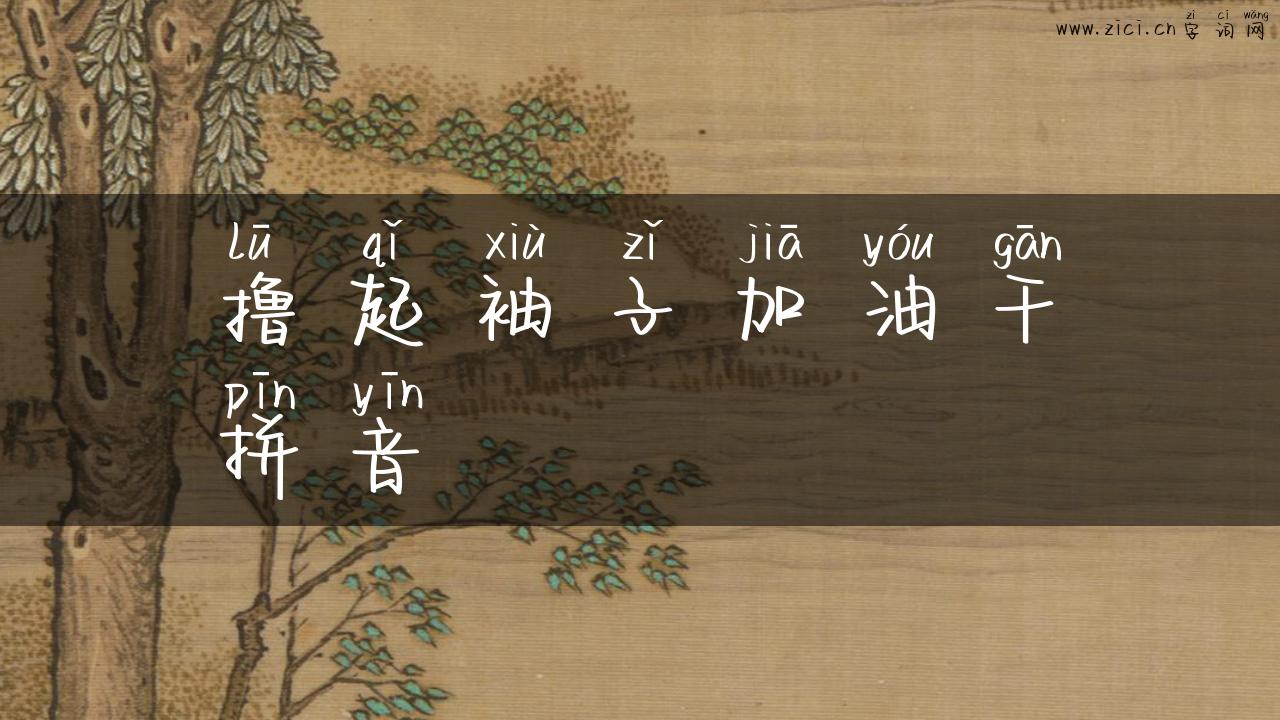 zì cí wǎng
www.zici.cn 字 词 网
lū qǐ xiù zǐ jiā yóu gān
撸 起 袖 子 加 油 干
pīn yīn
拼 音